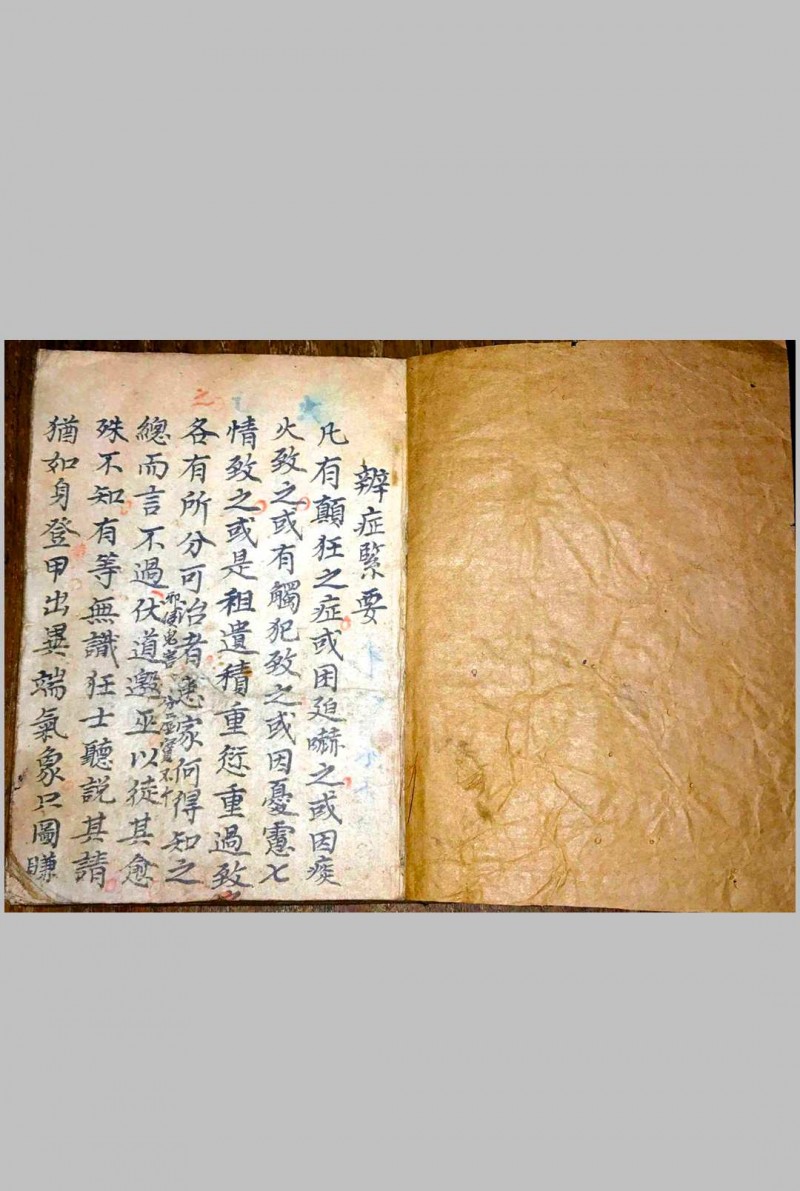 辨症緊要
凡有顛狂之症或因廹嚇之或因痰
火致之或有觸犯致之或因憂慮七
情致之或是租遺積重愆重過致
各有所分可治者患家何得知之
總而言不過伏道邀巫以徒其愈
殊不知有等無識狂士聽説其請
猶如身登甲出異端氣象只圖賺